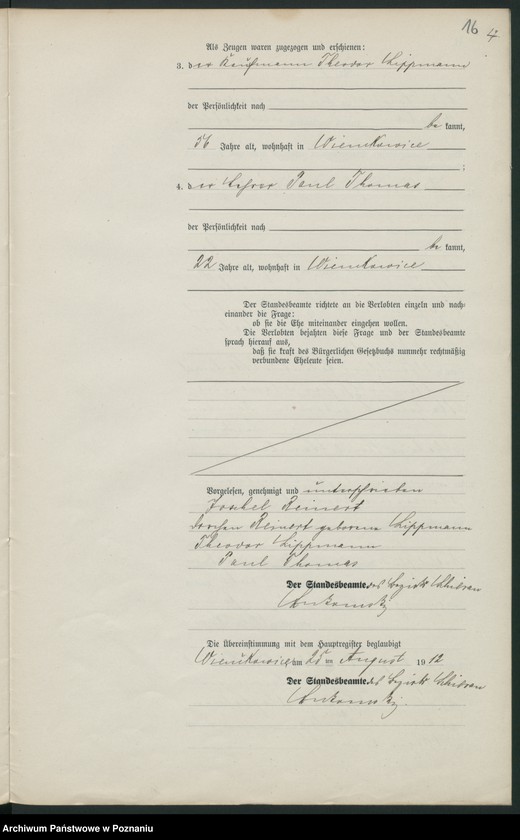 16 4
Als Zeugen waren zugezogen und erschienen:
3. der Kaufmann Theodor Lippmann
der Persönlichkeit nach
be kannt,
56 Jahre alt, wohnhaft in Wienskowice
;
4. der Lehrer Paul Thomas
der Persönlichkeit nach
be kannt,
22 Jahre alt, wohnhaft in Wienskowice
Der Standesbeamte richtete an die Verlobten einzeln und nach-
einander die Frage:
ob sie die Ehe miteinander eingehen wollen.
Die Verlobten bejahten diese Frage und der Standesbeamte
sprach hierauf aus,
daß sie kraft des Bürgerlichen Gesetzbuchs nunmehr rechtmäßig
verbundene Eheleute seien.
Vorgelesen, genehmigt und unterschrieben
Reinert
Reinert geborene Lippmann
Theodor Lippmann
Paul Thomas
Der Standesbeamte. des Bezirks
Die Übereinstimmung mit dem Hauptregister beglaubigt
am ten August 1912
Der Standesbeamte. des Bezirks
Archiwum Państwowe w Poznaniu